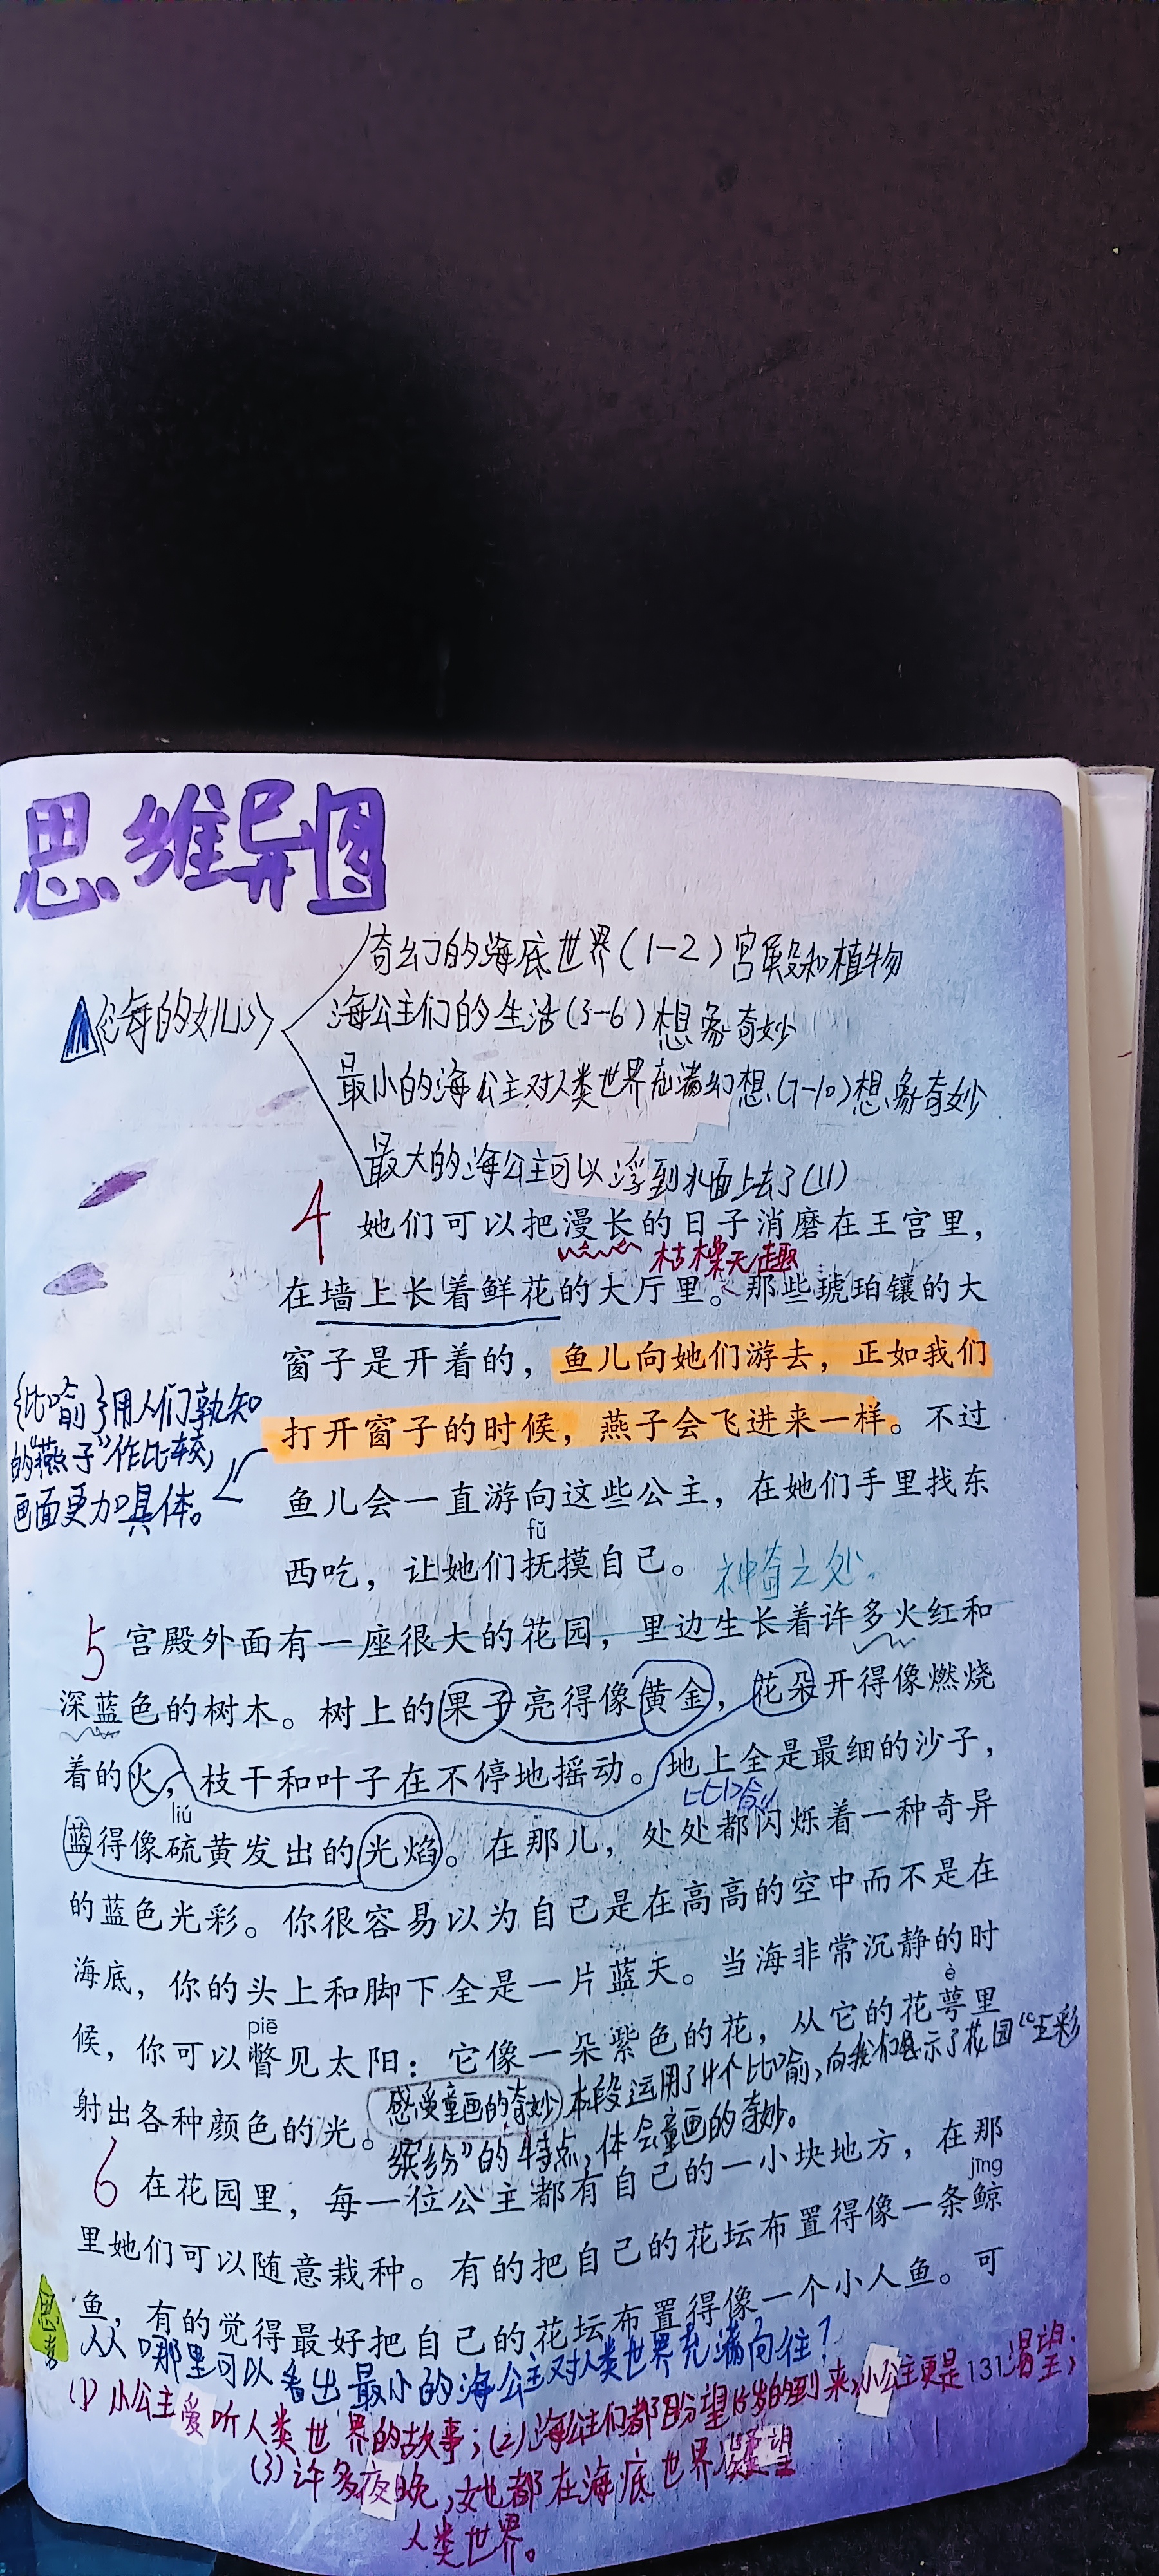 思维导图
奇幻的海底世界(1-2)宫殿和植物
《海的女儿》
海公主们的生活(3-6)想象奇妙
最小的海公主对人类世界充满幻想(7-10)想象奇妙
最大的海公主可以浮到水面上去了(11)
4 她们可以把漫长的日子消磨在王宫里，
枯燥无趣
在墙上长着鲜花的大厅里。那些琥珀镶的大
窗子是开着的，鱼儿向她们游去，正如我们
打开窗子的时候，燕子会飞进来一样。不过
{比喻}用人们孰知
的“燕子”作比较，
画面更加具体。
鱼儿会一直游向这些公主，在她们手里找东
fǔ
西吃，让她们抚摸自己。
神奇之处。
5 宫殿外面有一座很大的花园，里边生长着许多火红和
深蓝色的树木。树上的果子亮得像黄金，花朵开得像燃烧
着的火，枝干和叶子在不停地摇动。地上全是最细的沙子，
比喻
liú
蓝得像硫黄发出的光焰。在那儿，处处都闪烁着一种奇异
的蓝色光彩。你很容易以为自己是在高高的空中而不是在
海底，你的头上和脚下全是一片蓝天。当海非常沉静的时
piē è
候，你可以瞥见太阳：它像一朵紫色的花，从它的花萼里
射出各种颜色的光。
感受童画的奇妙 本段运用了4个比喻，向我们展示了花园“五彩
缤纷”的特点，体会童画的奇妙。
6 在花园里，每一位公主都有自己的一小块地方，在那
jīng
里她们可以随意栽种。有的把自己的花坛布置得像一条鲸
鱼，有的觉得最好把自己的花坛布置得像一个小人鱼。可
思考
从哪里可以看出最小的海公主对人类世界充满向往？
131
(1)小公主爱听人类世界的故事；(2)海公主们都盼望15岁的到来，小公主更是渴望；
(3)许多夜晚，她都在海底世界凝望
人类世界。